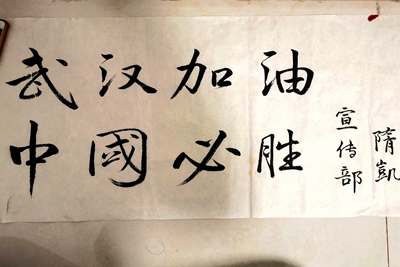 武汉加油
中國必胜
宣传部
隋凱